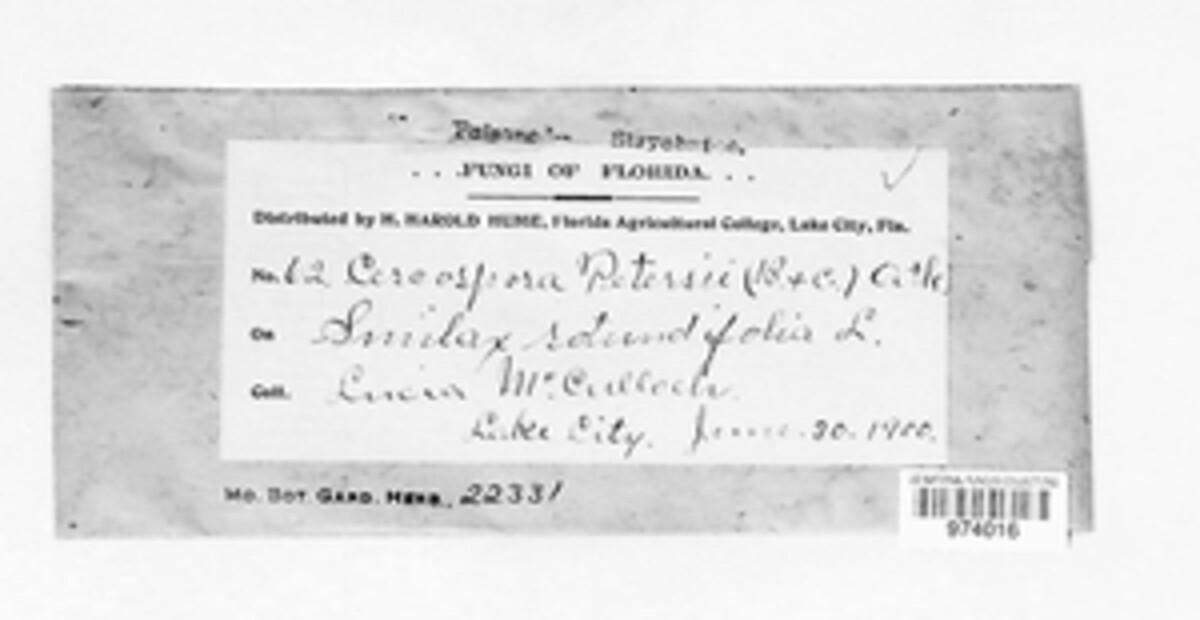 . . .FUNGI OF FLORIDA. . .
Distributed by H. HAROLD HUME, Florida Agricultural College, Lake City, Fla.
No. 62 Cercospora Petersii (B & C.) Atk.
On Smilax rotundifolia L.
Coll. Lucia McCulloch.
Lake City. June. 20. 1900.
MO. BOT. GARD. HERB., 22331
974016